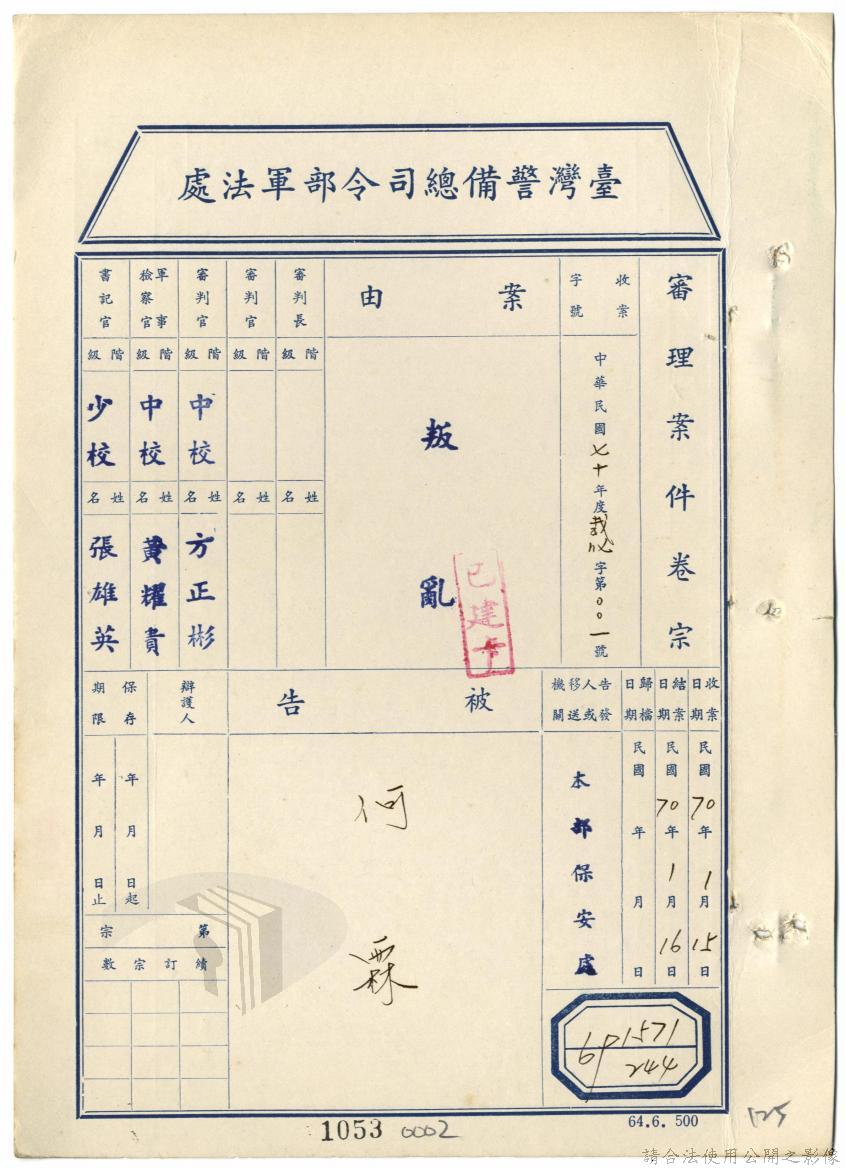 臺灣警備總司令部軍法處
審理案件卷宗
收案字號
中華民國七十年度裁字第００一號
案由
叛亂
已建卡
審判長
階級
姓名
審判官
階級
姓名
審判官
階級
中校
姓名
方正彬
軍事檢察官
階級
中校
姓名
黃耀貴
書記官
階級
少校
姓名
張雄英
收案日期
民國70年1月15日
結案日期
民國70年1月16日
歸檔日期
民國 年 月 日
告發人或移送機關
本部保安處
被告
何霖
辯護人
保存期限
年 月 日起
年 月 日止
第 宗
續訂宗數
1571
69
244
1053 0002
64.6. 500
125
請合法使用公開之影像